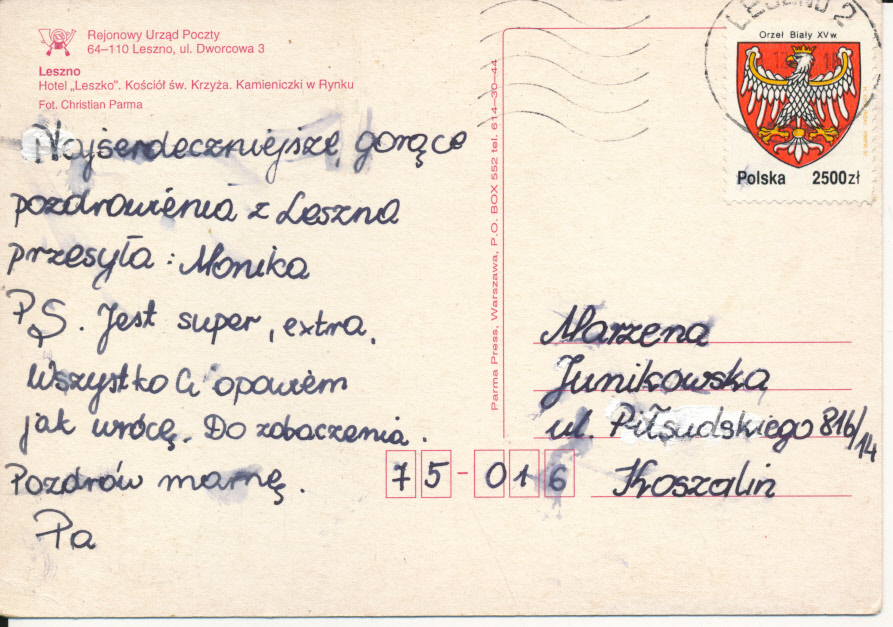 Rejonowy Urząd Poczty
64–110 Leszno, ul. Dworcowa 3
Leszno
Hotel „Leszko”. Kościół św. Krzyża. Kamieniczki w Rynku
Fot. Christian Parma
Najserdeczniejsze, gorące
pozdrowienia z Leszna
przesyła : Monika
PS. Jest super, extra,
Wszystko Ci opowiem
jak wrócę. Do zobaczenia.
Pozdrów mamę.
Pa
Parma Press, Warszawa, P.O. BOX 552 tel. 614-30-44
LESZNO 2
Orzeł Biały XV w.
Polska 2500 zł
Marzena
Junikowska
ul. Piłsudskiego 816/14
75-016 Koszalin